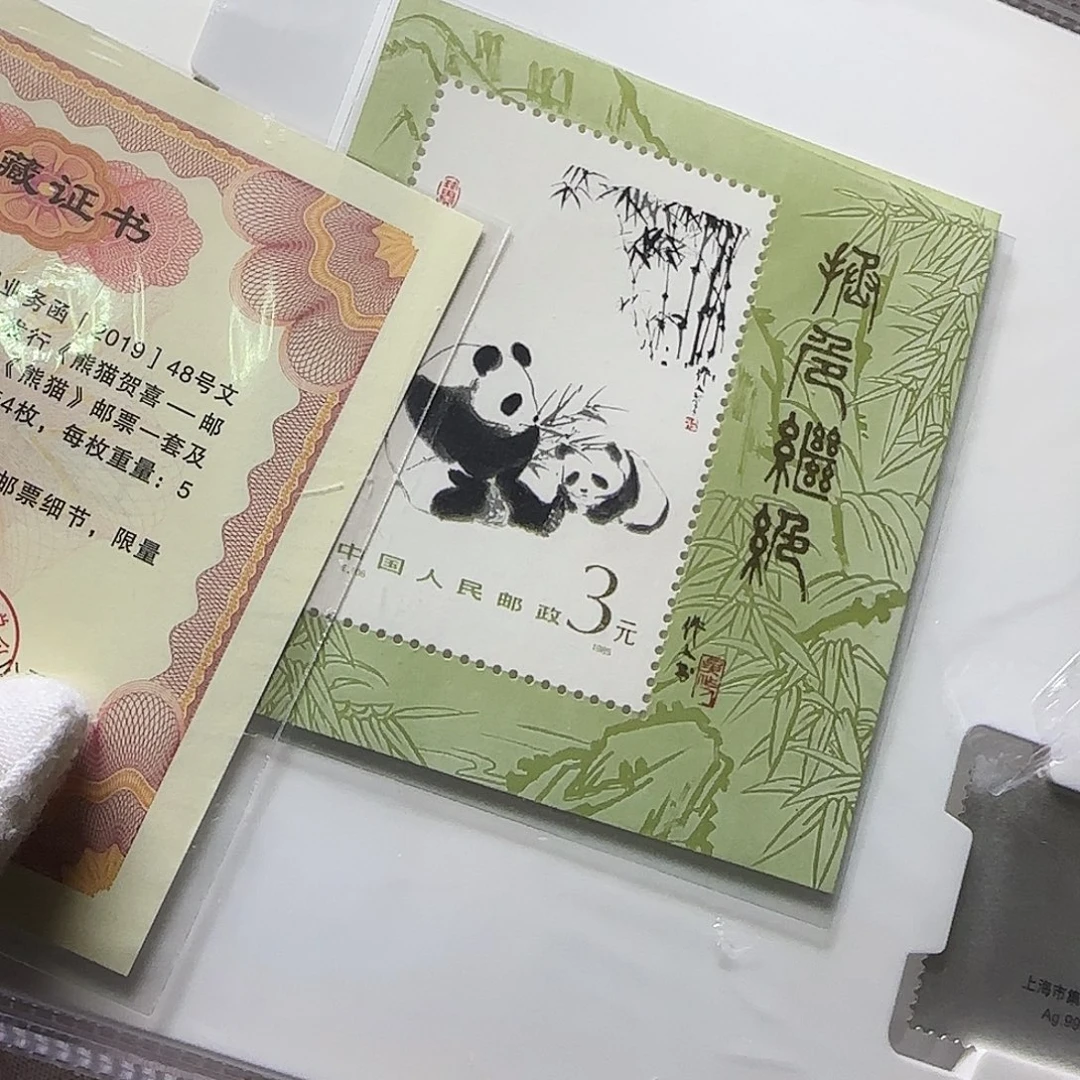 藏证书
业务函［2019］48号文
发行《熊猫贺喜—邮
《熊猫》邮票一套及
4枚，每枚重量：5
邮票细节，限量
中国人民邮政3元
1985
作人
上海市集
Ag.99